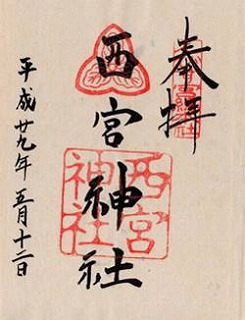 奉拝
西宮神社
西宮神社
平成廿九年 五月十二日